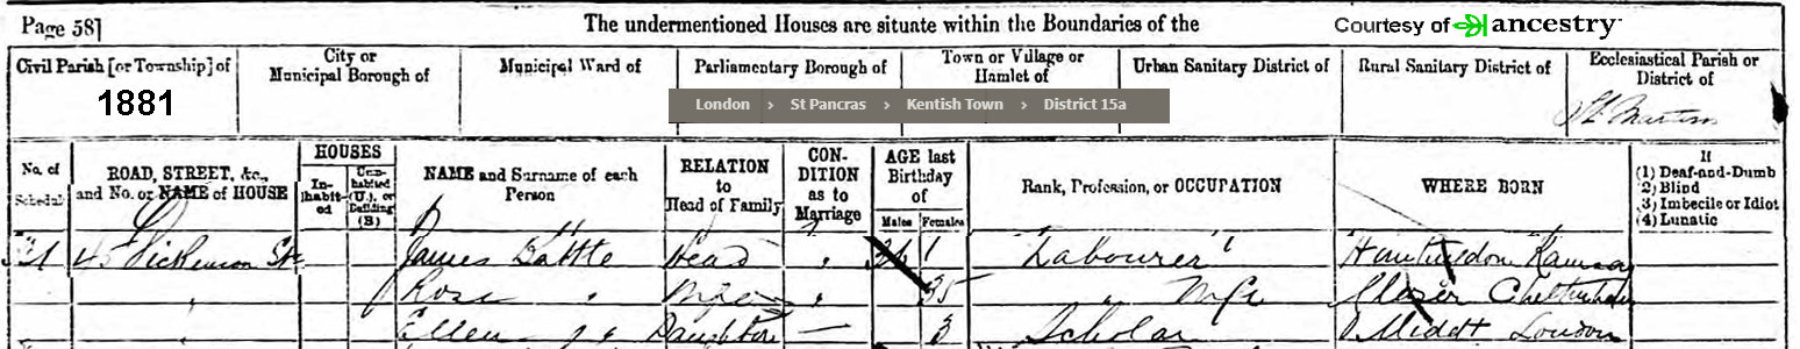 Page 58]
The undermentioned Houses are situate within the Boundaries of the
Courtesy of ancestry
Civil Parish [or Township] of
City or Municipal Borough of
Municipal Ward of
Parliamentary Borough of
Town or Village or Hamlet of
Urban Sanitary District of
Rural Sanitary District of
Ecclesiastical Parish or District of
1881
London › St Pancras › Kentish Town › District 15a
St Martins
No. of Schedule
ROAD, STREET, &c., and No. or NAME of HOUSE
HOUSES
In-habit-ed
Unin-habited (U.), or Building (B)
NAME and Surname of each Person
RELATION to Head of Family
CON-DITION as to Marriage
AGE last Birthday of
Males Females
Rank, Profession, or OCCUPATION
WHERE BORN
If
(1) Deaf-and-Dumb
(2) Blind
(3) Imbecile or Idiot
(4) Lunatic
45 Dickenson St James Battle Head Labourer Huntingdon Ramsey
Rose Wife 35 Wife Cheltenham
Ellen Daughter — 3 Scholar Middx London